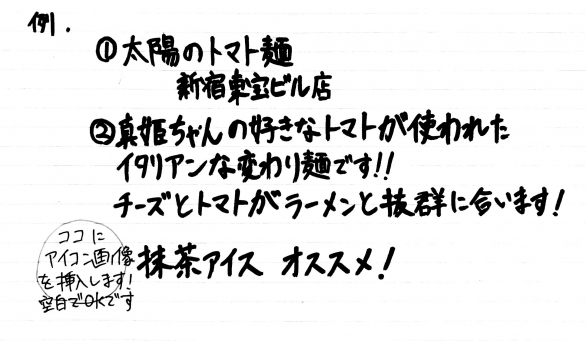 例.
①太陽のトマト麺
新宿東宝ビル店
②真姫ちゃんの好きなトマトが使われた
イタリアンな変わり麺です!!
チーズとトマトがラーメンと抜群に合います!
ココに
アイコン画像
を挿入します!
空白でOKです
抹茶アイス オススメ!